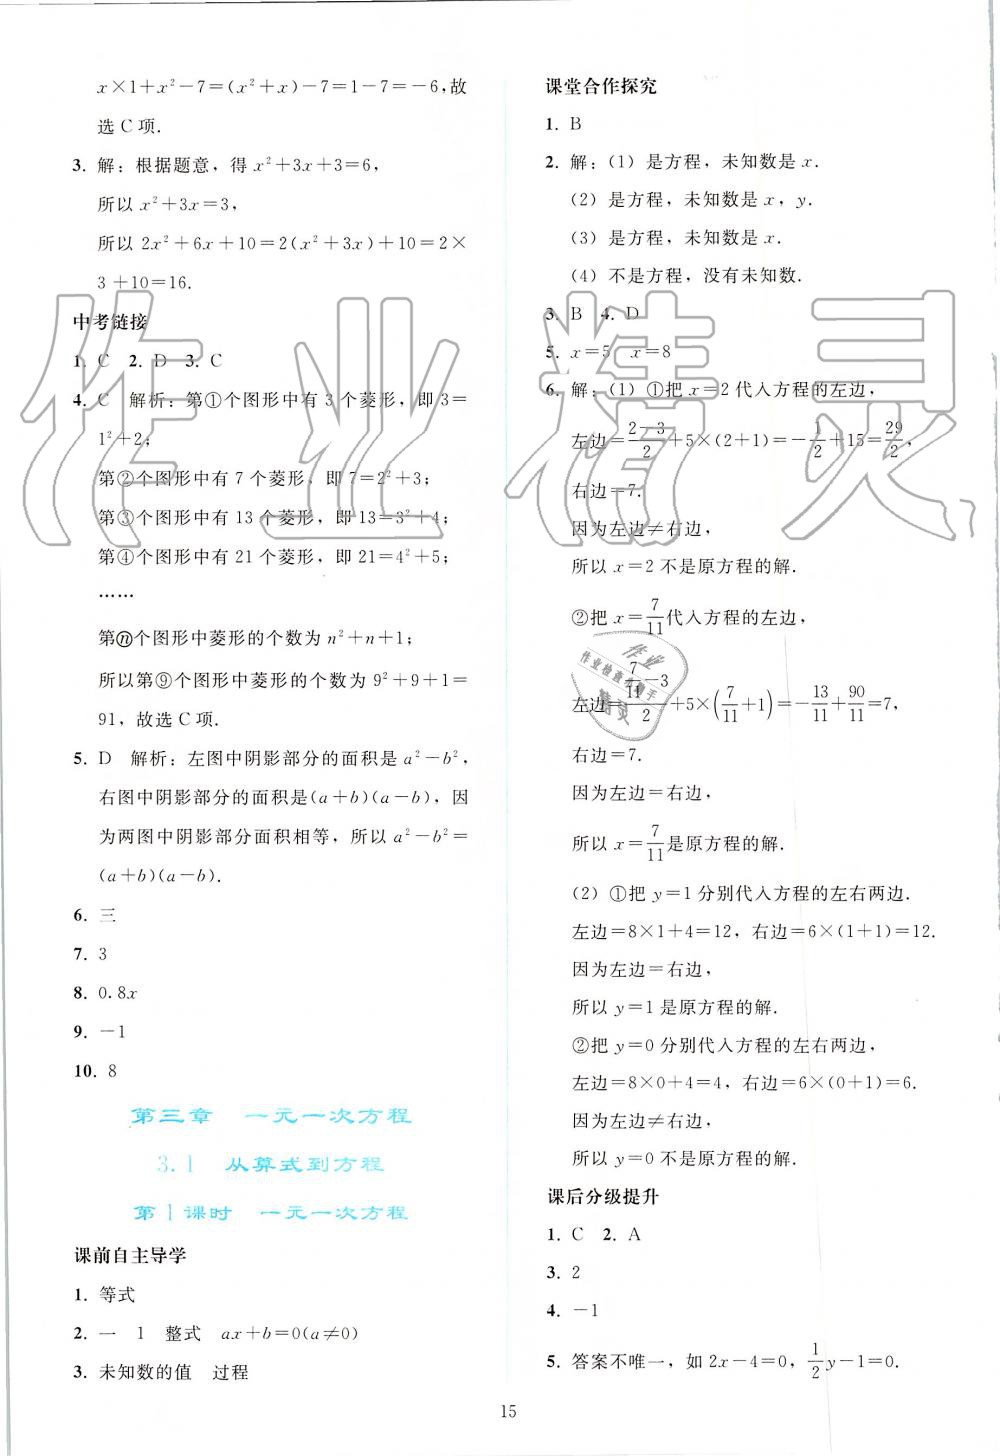 x×1+x²-7=(x²+x)-7=1-7=-6,故
选C项.
3. 解:根据题意,得 x²+3x+3=6,
所以 x²+3x=3,
所以 2x²+6x+10=2(x²+3x)+10=2×
3+10=16.
中考链接
1. C 2. D 3. C
4. C 解析:第①个图形中有 3 个菱形,即 3=
1²+2;
第②个图形中有 7 个菱形,即 7=2²+3;
第③个图形中有 13 个菱形,即 13=3²+4;
第④个图形中有 21 个菱形,即 21=4²+5;
……
第ⓝ个图形中菱形的个数为 n²+n+1;
所以第⑨个图形中菱形的个数为 9²+9+1=
91,故选 C 项.
5. D 解析:左图中阴影部分的面积是 a²-b²,
右图中阴影部分的面积是(a+b)(a-b),因
为两图中阴影部分面积相等,所以 a²-b²=
(a+b)(a-b).
6. 三
7. 3
8. 0.8x
9. -1
10. 8
第三章 一元一次方程
3.1 从算式到方程
第1课时 一元一次方程
课前自主导学
1. 等式
2. 一 1 整式 ax+b=0(a≠0)
3. 未知数的值 过程
课堂合作探究
1. B
2. 解:(1) 是方程,未知数是 x.
(2) 是方程,未知数是 x,y.
(3) 是方程,未知数是 x.
(4) 不是方程,没有未知数.
3. B 4. D
5. x=5 x=8
6. 解:(1) ①把 x=2 代入方程的左边,
左边=(2-3)/2+5×(2+1)=-1/2+15=29/2,
右边=7.
因为左边≠右边,
所以 x=2 不是原方程的解.
②把 x=7/11代入方程的左边,
左边=(7/11-3)/2+5×(7/11+1)=-13/11+90/11=7,
右边=7.
因为左边=右边,
所以 x=7/11是原方程的解.
(2) ①把 y=1 分别代入方程的左右两边.
左边=8×1+4=12,右边=6×(1+1)=12.
因为左边=右边,
所以 y=1 是原方程的解.
②把 y=0 分别代入方程的左右两边,
左边=8×0+4=4,右边=6×(0+1)=6.
因为左边≠右边,
所以 y=0 不是原方程的解.
课后分级提升
1. C 2. A
3. 2
4. -1
5. 答案不唯一,如 2x-4=0,1/2y-1=0.
15
作业精灵
作业
作业检查小助手
精灵